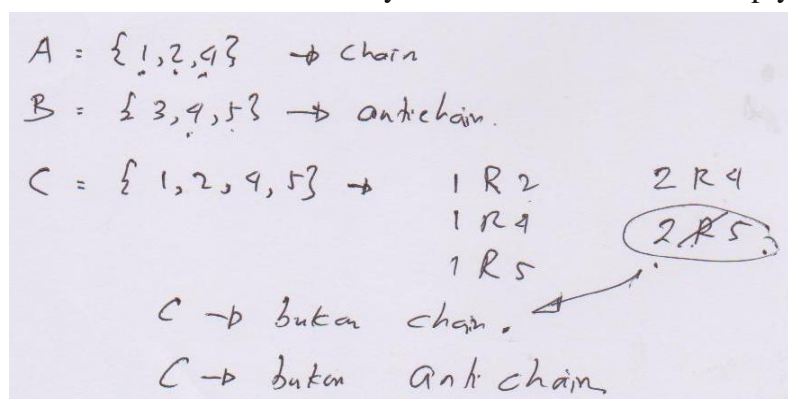 A = {1,2,4} → chain
B = {3,4,5} → antichain.
C = {1,2,4,5} → 1 R 2 2 R 4
1 R 4 2 R̸ 5
1 R 5
C → bukan chain.
C → bukan anti chain